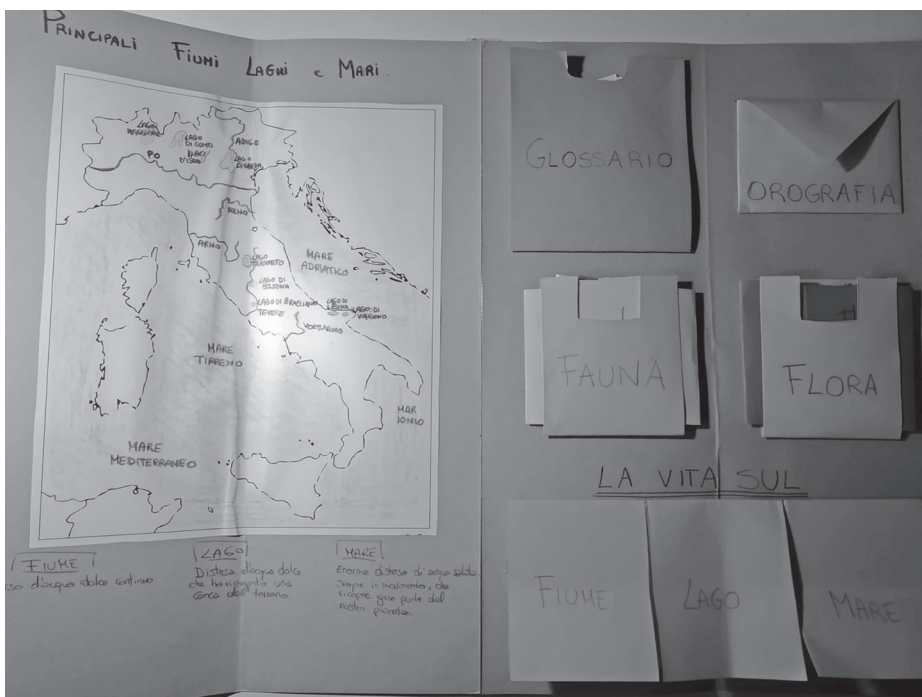 PRINCIPALI FIUMI LAGHI e MARI.
LAGO MAGGIORE
LAGO DI COMO
LAGO D'ISEO
ADIGE
LAGO DI GARDA
PO
RENO
ARNO
LAGO TRASIMENO
LAGO DI BOLSENA
LAGO DI BRACCIANO
TEVERE
MARE
ADRIATICO
LAGO DI
LAGO DI VARANO
VOLTURNO
MARE
TIRRENO
MAR
IONIO
MARE
MEDITERRANEO
FIUME
d'acqua dolce continuo
LAGO
Distesa d'acqua dolce
che ha riempito una
conca del terreno.
MARE
Enorme distesa di acqua salata
sempre in movimento, che
ricopre gran parte del
nostro pianeta.
GLOSSARIO
OROGRAFIA
FAUNA
FLORA
LA VITA SUL
FIUME
LAGO
MARE